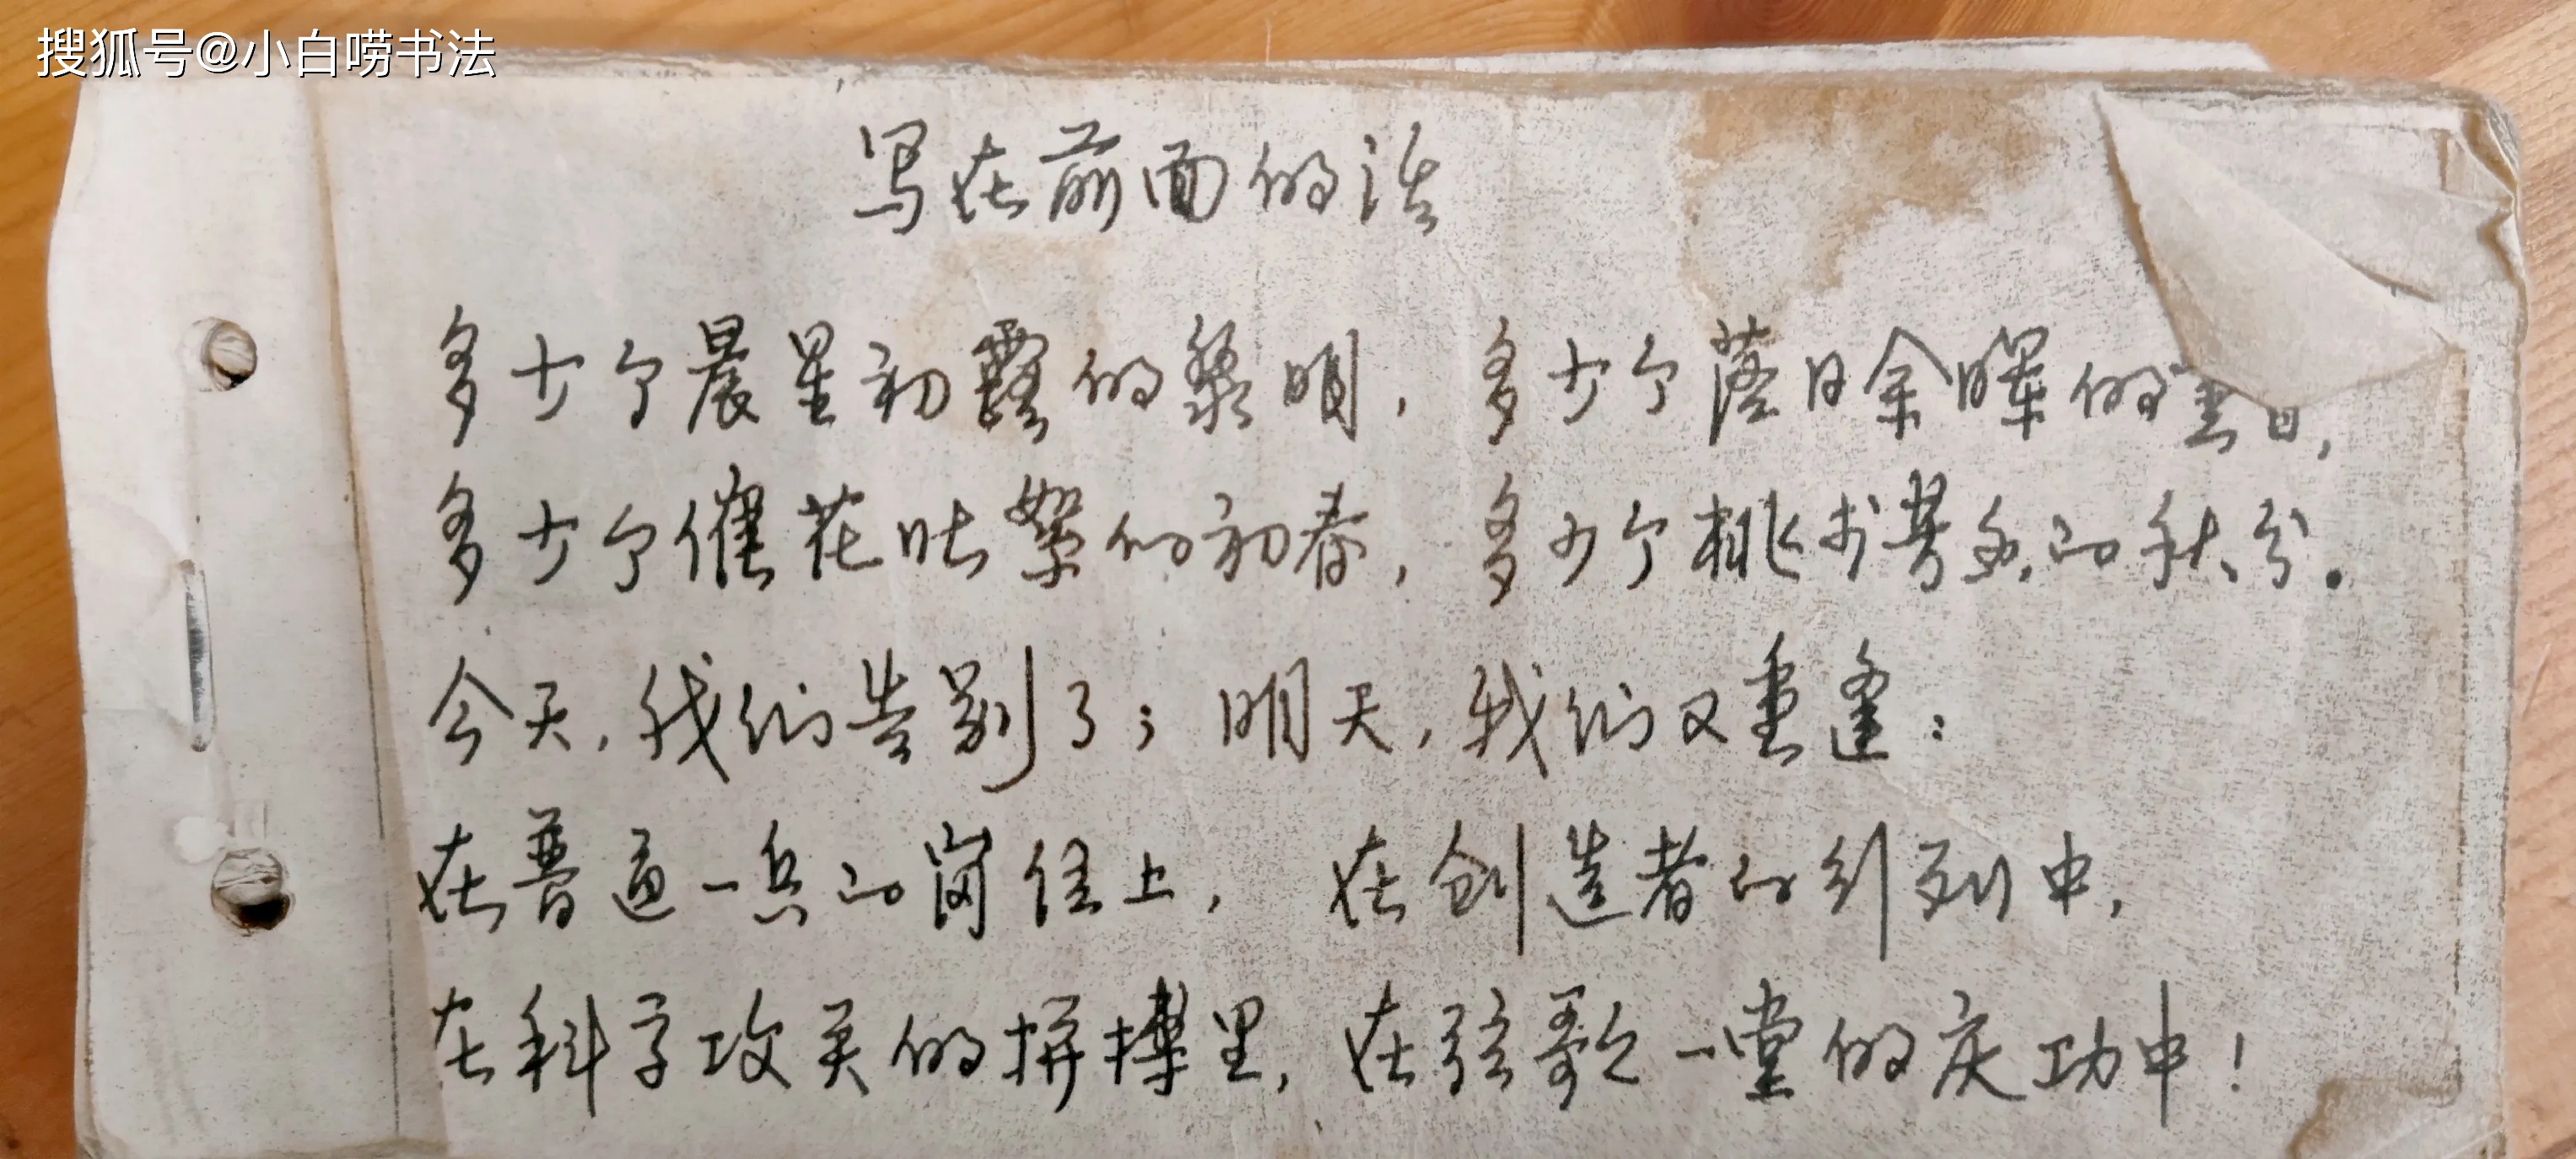 搜狐号@小白唠书法
写在前面的话
多少个晨星初露的黎明，多少个落日余晖的
多少个催花吐絮的初春，多少个桃李芬的秋分。
今天，我们告别了；明天，我们又重逢：
在普通一兵的岗位上，在创造者的行列中，
在科学攻关的拼搏里，在弦歌一堂的庆功中！